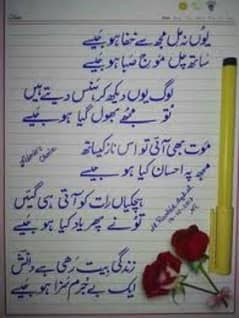 یوں نہ مل مجھ سے خفا ہو جیسے
ساتھ چل موج صبا ہو جیسے
لوگ یوں دیکھ کر ہنس دیتے ہیں
تو مجھے بھول گیا ہو جیسے
موت بھی آئی تو اس ناز کیساتھ
مجھ پہ احسان کیا ہو جیسے
ہچکیاں رات کو آتی ہی گئیں
تو نے پھر یاد کیا ہو جیسے
زندگی بیت رھی ہے دانش
ایک بے جرم سزا ہو جیسے